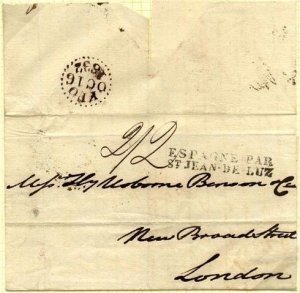 FPO
OC 16
2/2
ESPAGNE PAR
ST JEAN-DE-LUZ
Messrs Hy Usborne Benson & Co
New Broad Street
London